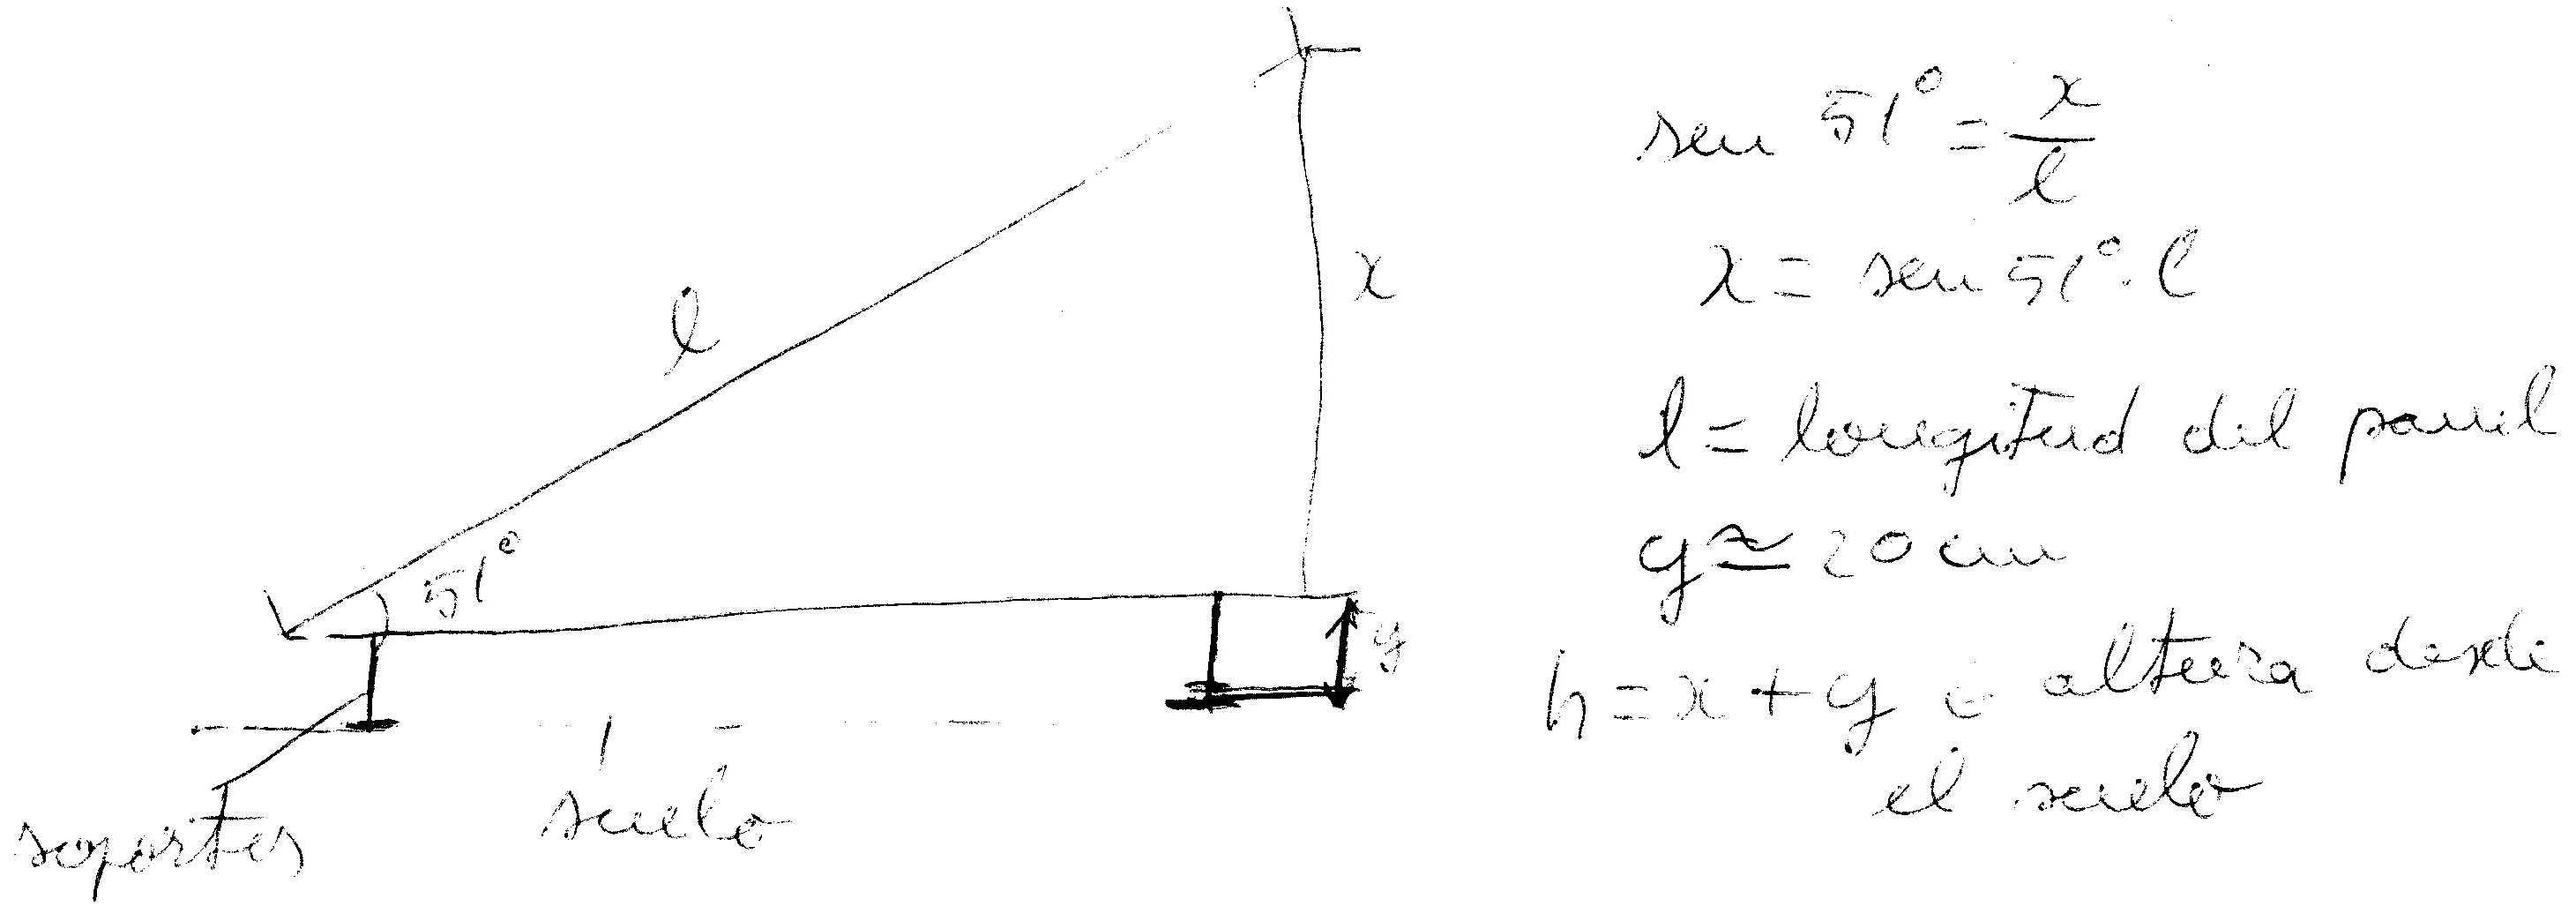 l
51°
x
y
soportes
suelo
sen 51° = x/l
x = sen 51° · l
l = longitud del panel
y ≃ 20 cm
h = x + y = altura desde
el suelo